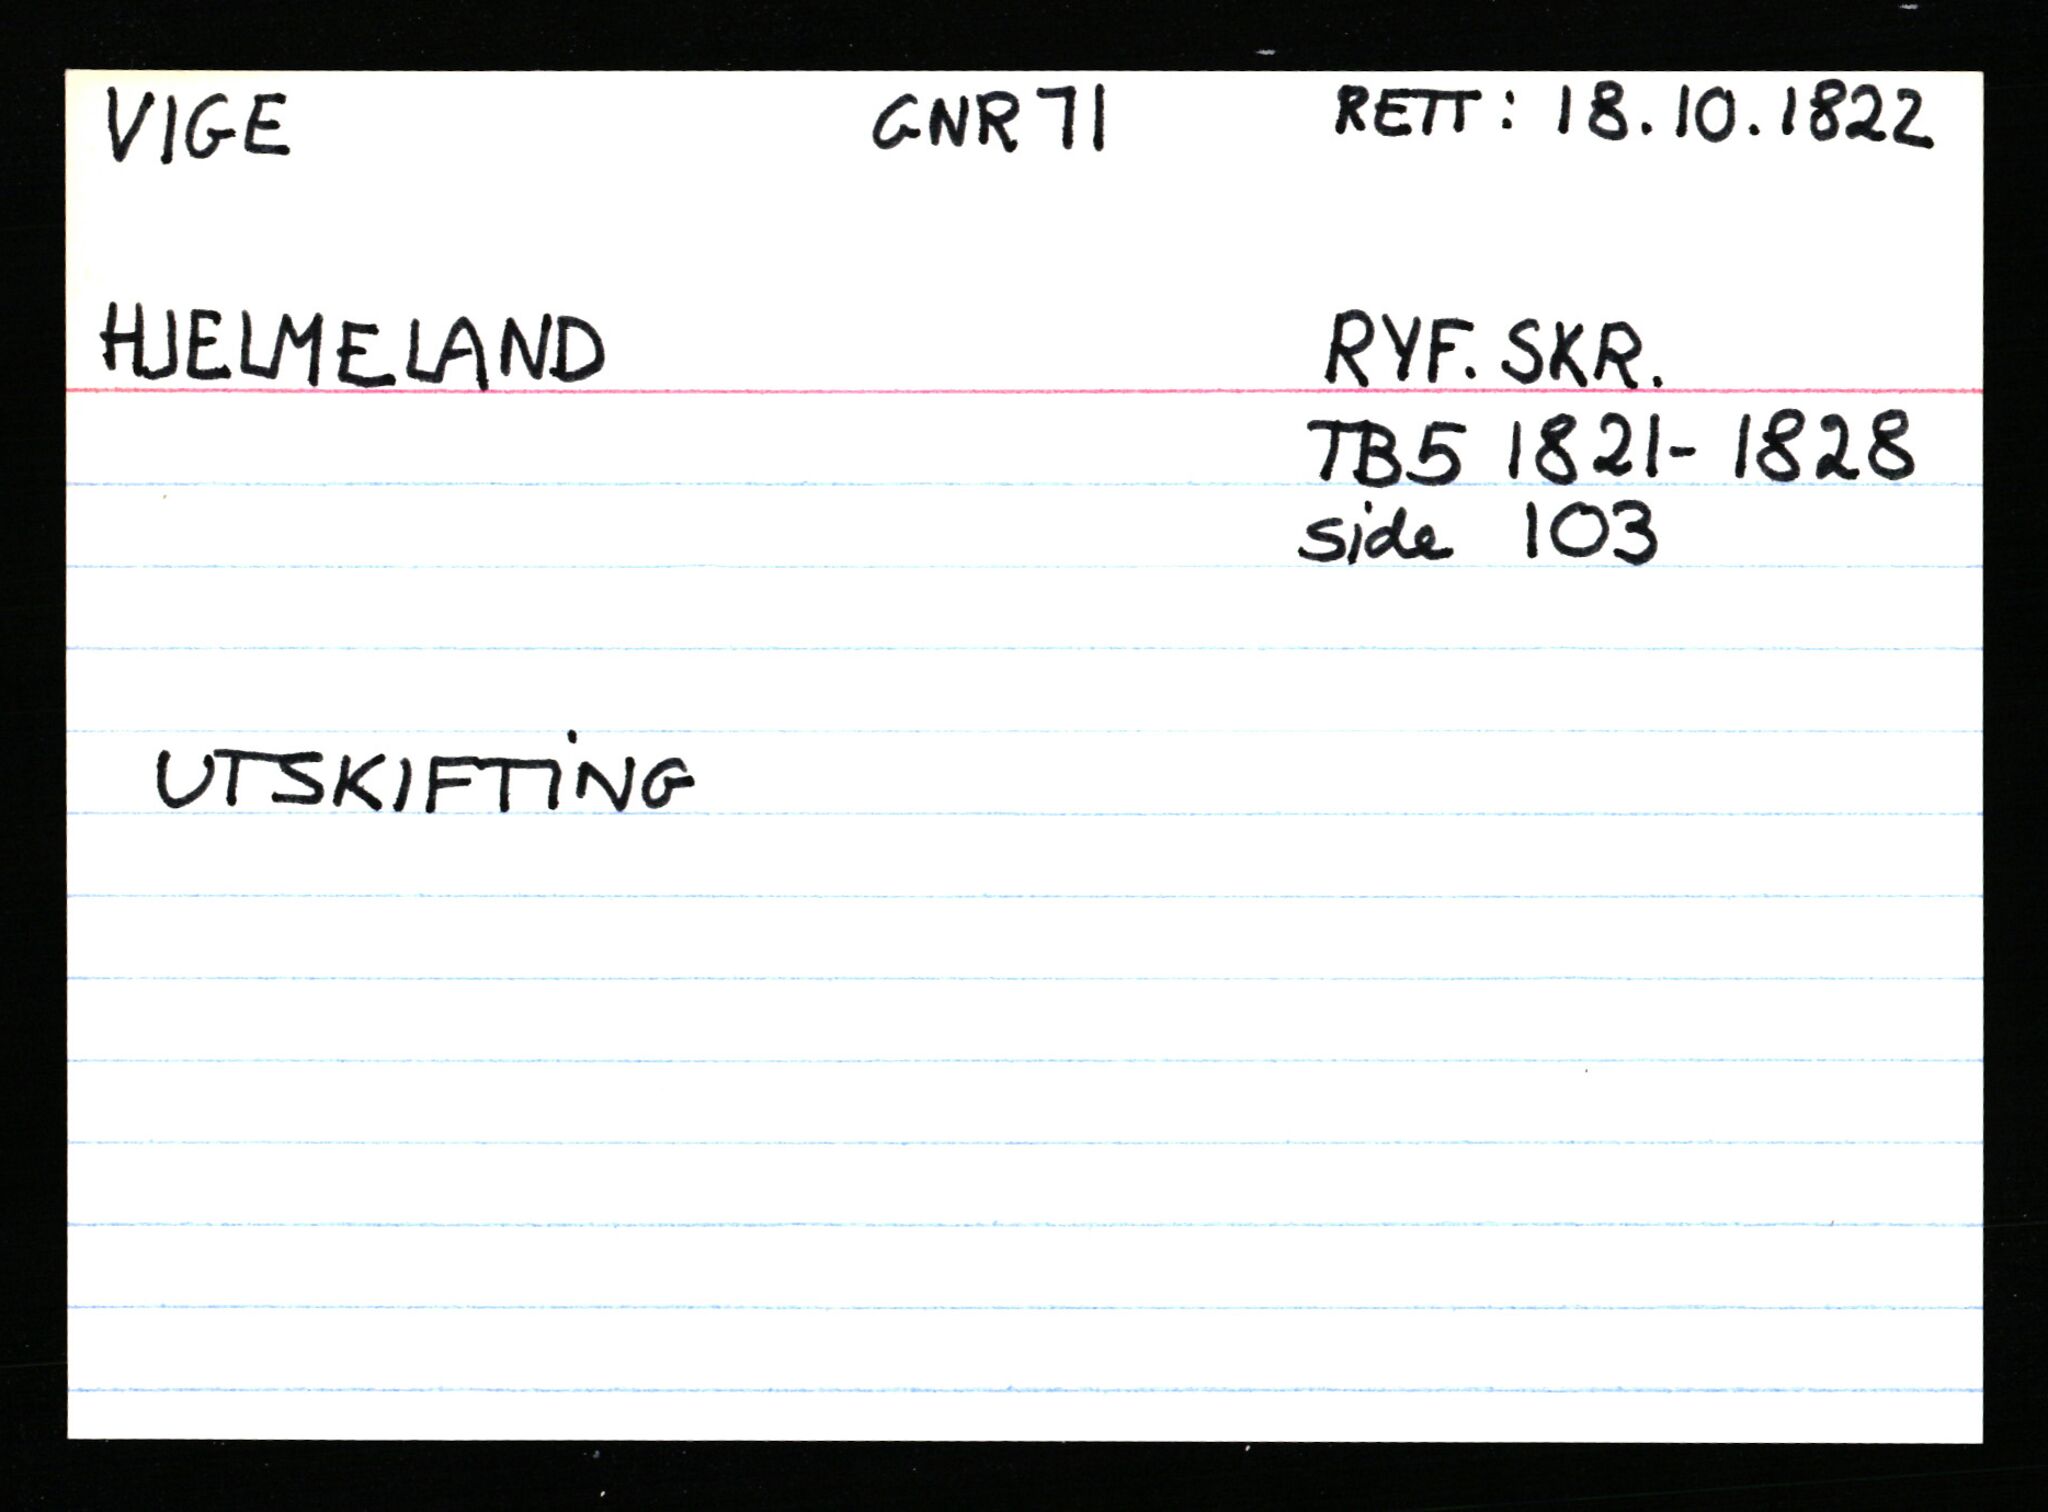 VIGE GNR 71 RETT: 18.10.1822
HJELMELAND RYF. SKR.
TB5 1821-1828
side 103
UTSKIFTING